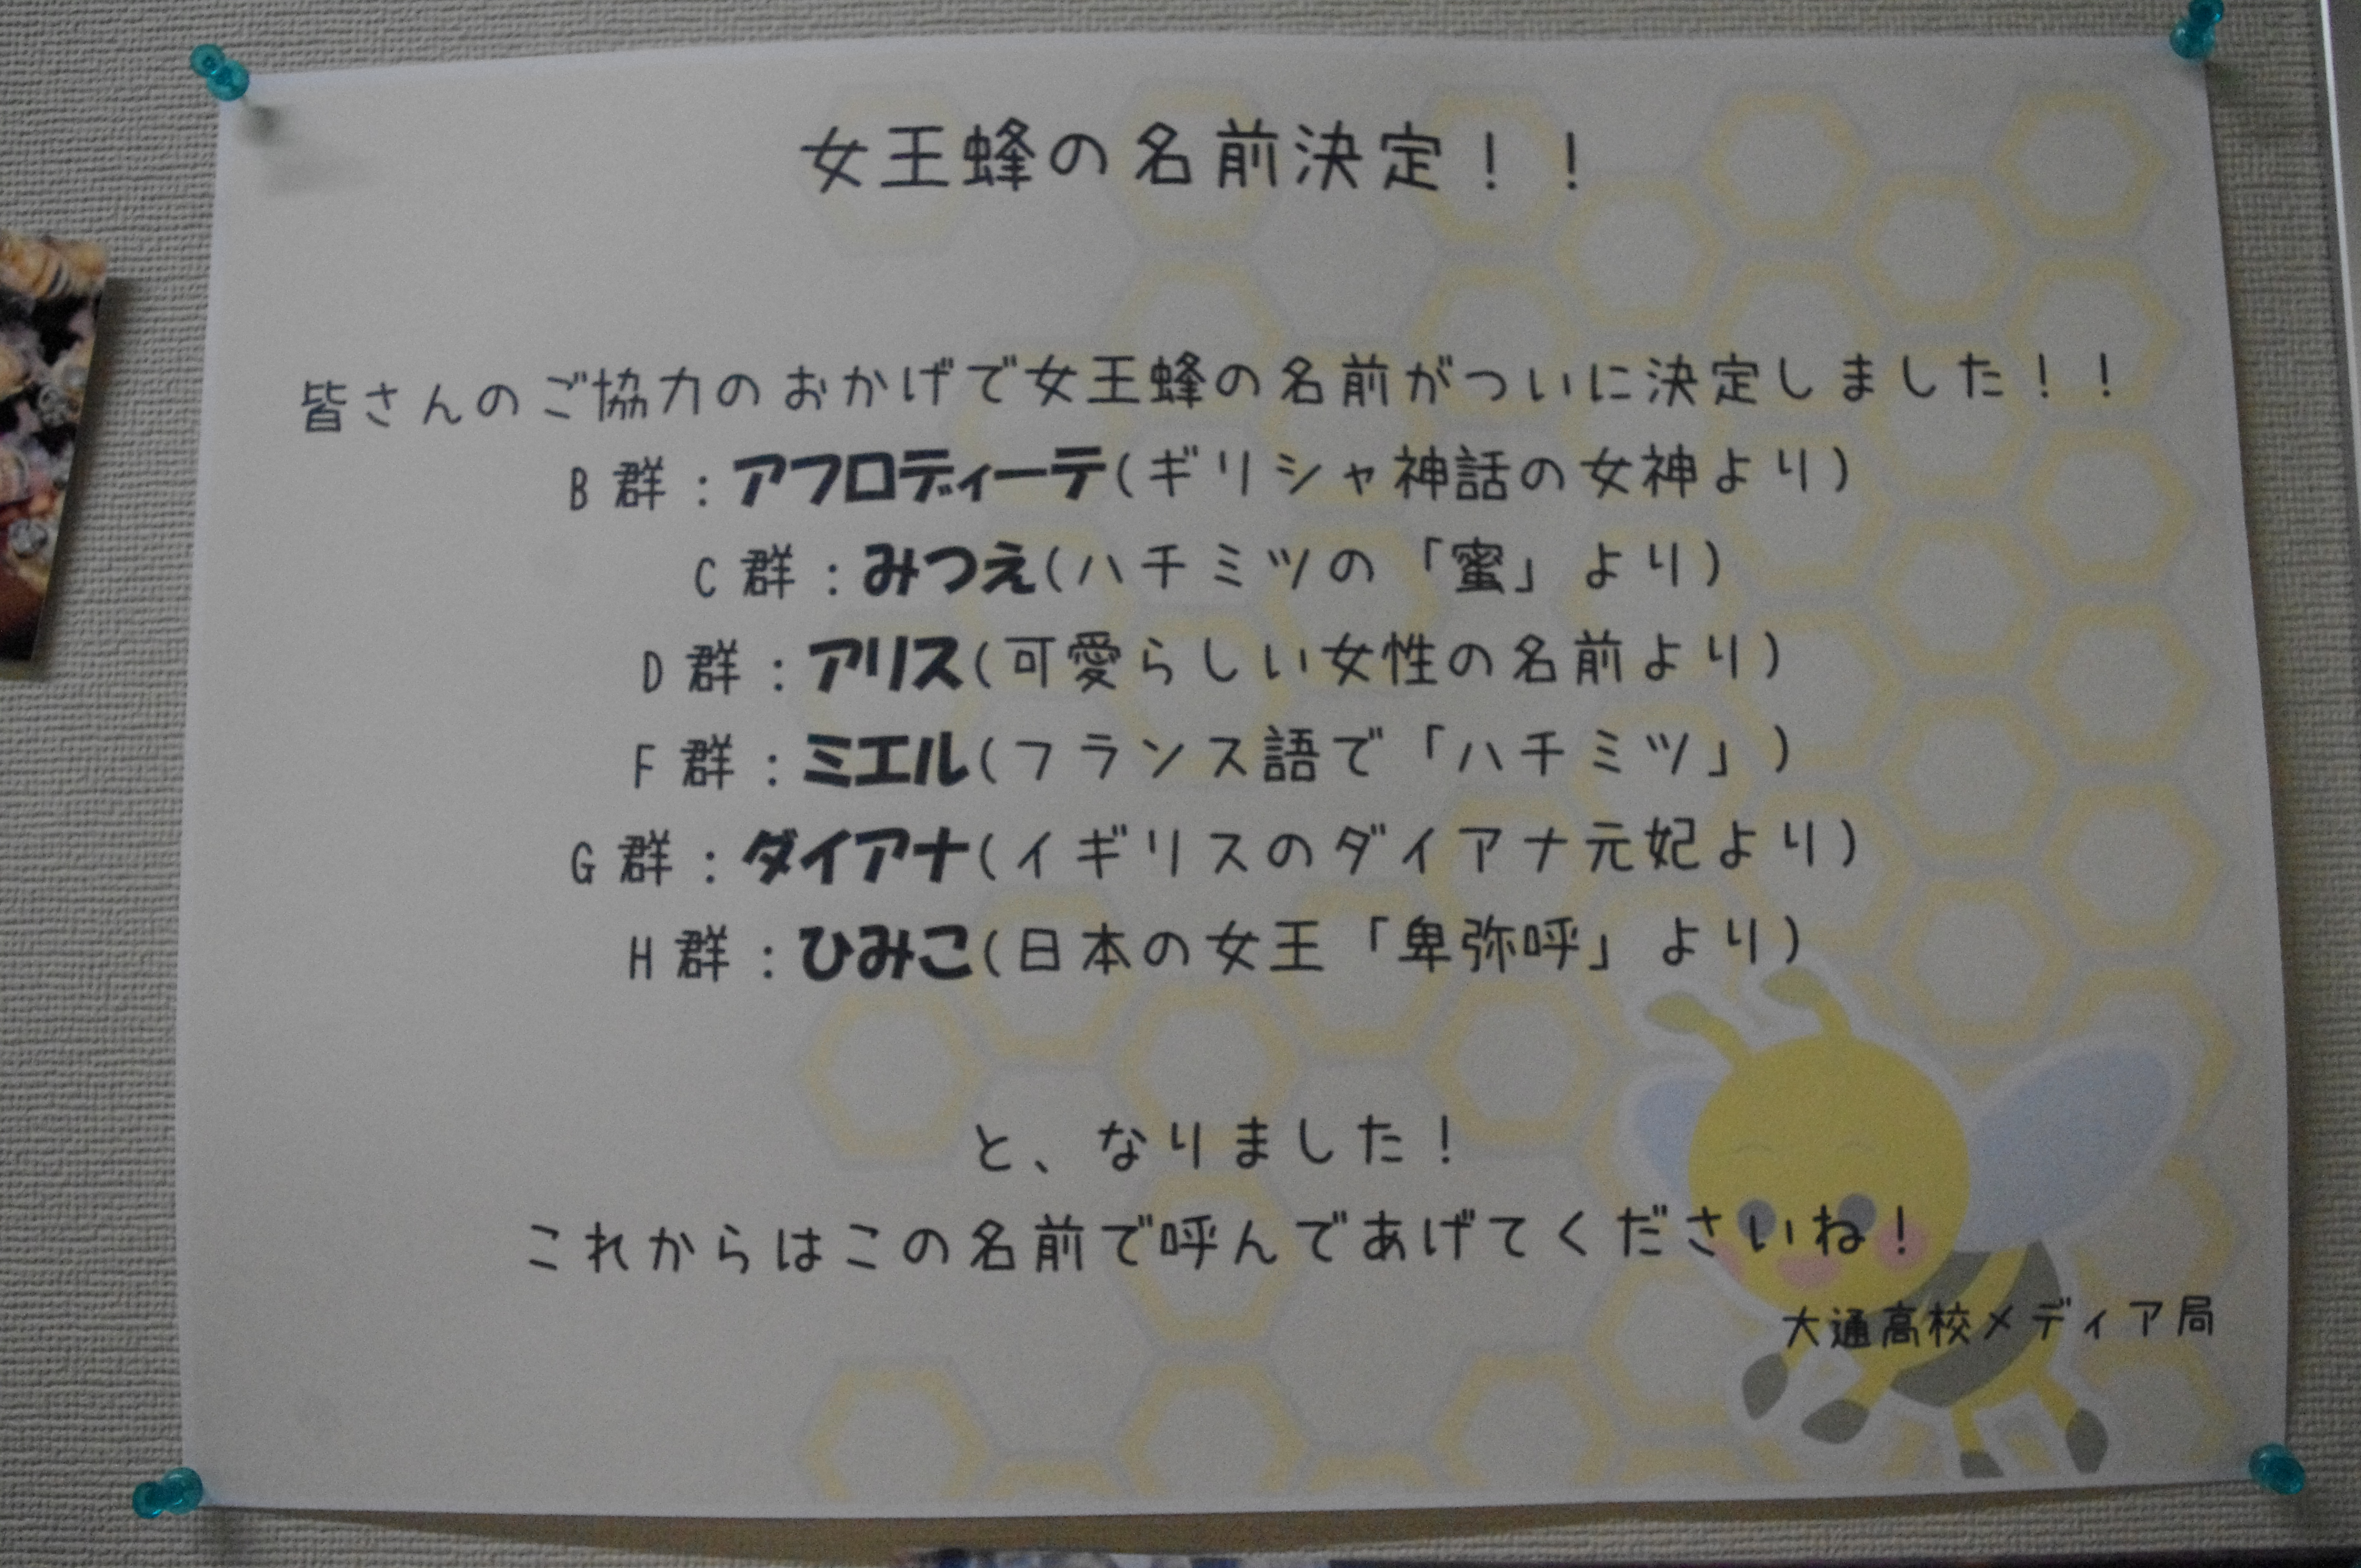 女王蜂の名前決定！！
皆さんのご協力のおかげで女王蜂の名前がついに決定しました！！
B群：アフロディーテ(ギリシャ神話の女神より)
C群：みつえ(ハチミツの「蜜」より)
D群：アリス(可愛らしい女性の名前より)
F群：ミエル(フランス語で「ハチミツ」)
G群：ダイアナ(イギリスのダイアナ元妃より)
H群：ひみこ(日本の女王「卑弥呼」より)
と、なりました！
これからはこの名前で呼んであげてくださいね！
大通高校メディア局